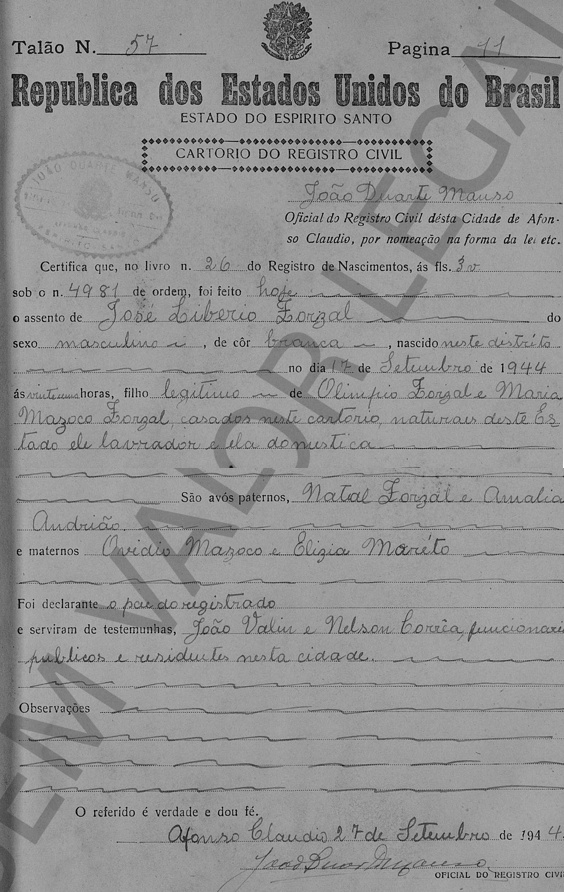 Talão N. 57 Pagina 11
Republica dos Estados Unidos do Brasil
ESTADO DO ESPIRITO SANTO
CARTORIO DO REGISTRO CIVIL
JOÃO DUARTE MANSO
João Duarte Manso
Oficial do Registro Civil désta Cidade de Afon-
so Claudio, por nomeação na forma da lei etc.
Certifica que, no livro n. 26 do Registro de Nascimentos, ás fls. 3v
sob o n. 4981 de ordem, foi feito hoje
o assento de José Liberio Zorzal do
sexo masculino, de côr branca, nascido neste distrito
no dia 17 de Setembro de 1944
ás vinte uma horas, filho legitimo de Olimpio Zorzal e Maria
Mazoco Zorzal, casados neste cartório, naturais deste Es-
tado ele lavrador e ela domestica
São avós paternos, Natal Zorzal e Amalia
Andrião.
e maternos Ovidio Mazoco e Elizia Maréto
Foi declarante o pae do registrado
e serviram de testemunhas, João Valin e Nelson Corrêa, funcionari
publicos e residentes nesta cidade.
Observações
O referido é verdade e dou fé.
Afonso Claudio 27 de Setembro de 1944.
João Duarte Manso
OFICIAL DO REGISTRO CIVI
SEM VALOR LEGAL